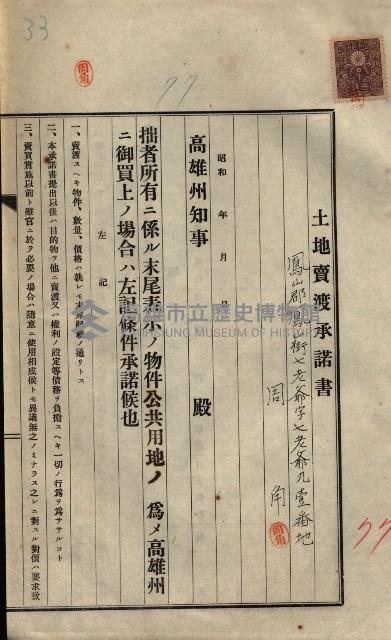 土地賣渡承諾書
鳳山郡鳳山街七老爺字七老爺九壹番地
周 角
周角
昭和 年 月 日
高雄州知事 殿
拙者所有ニ係ル末尾表示ノ物件公共用地ノ爲メ高雄州
ニ御買上ノ場合ハ左記條件承諾候也
左記
一、賣渡スヘキ物件、數量、價格ハ孰レモ末尾記載ノ通リトス
二、本承諾書提出以後ハ目的物ヲ他ニ賣渡又ハ權利ノ設定等債務ヲ負擔スヘキ一切ノ行爲ヲ爲ササルコト
三、賣買實施以前ト雖官ニ於テ必要ノ場合ハ隨意ニ使用相成候トモ異議無之ノミナラス之レニ對スル對價ハ要求致
周角
33
77
77
高雄市立歷史博物館
KAOHSIUNG MUSEUM OF HISTORY